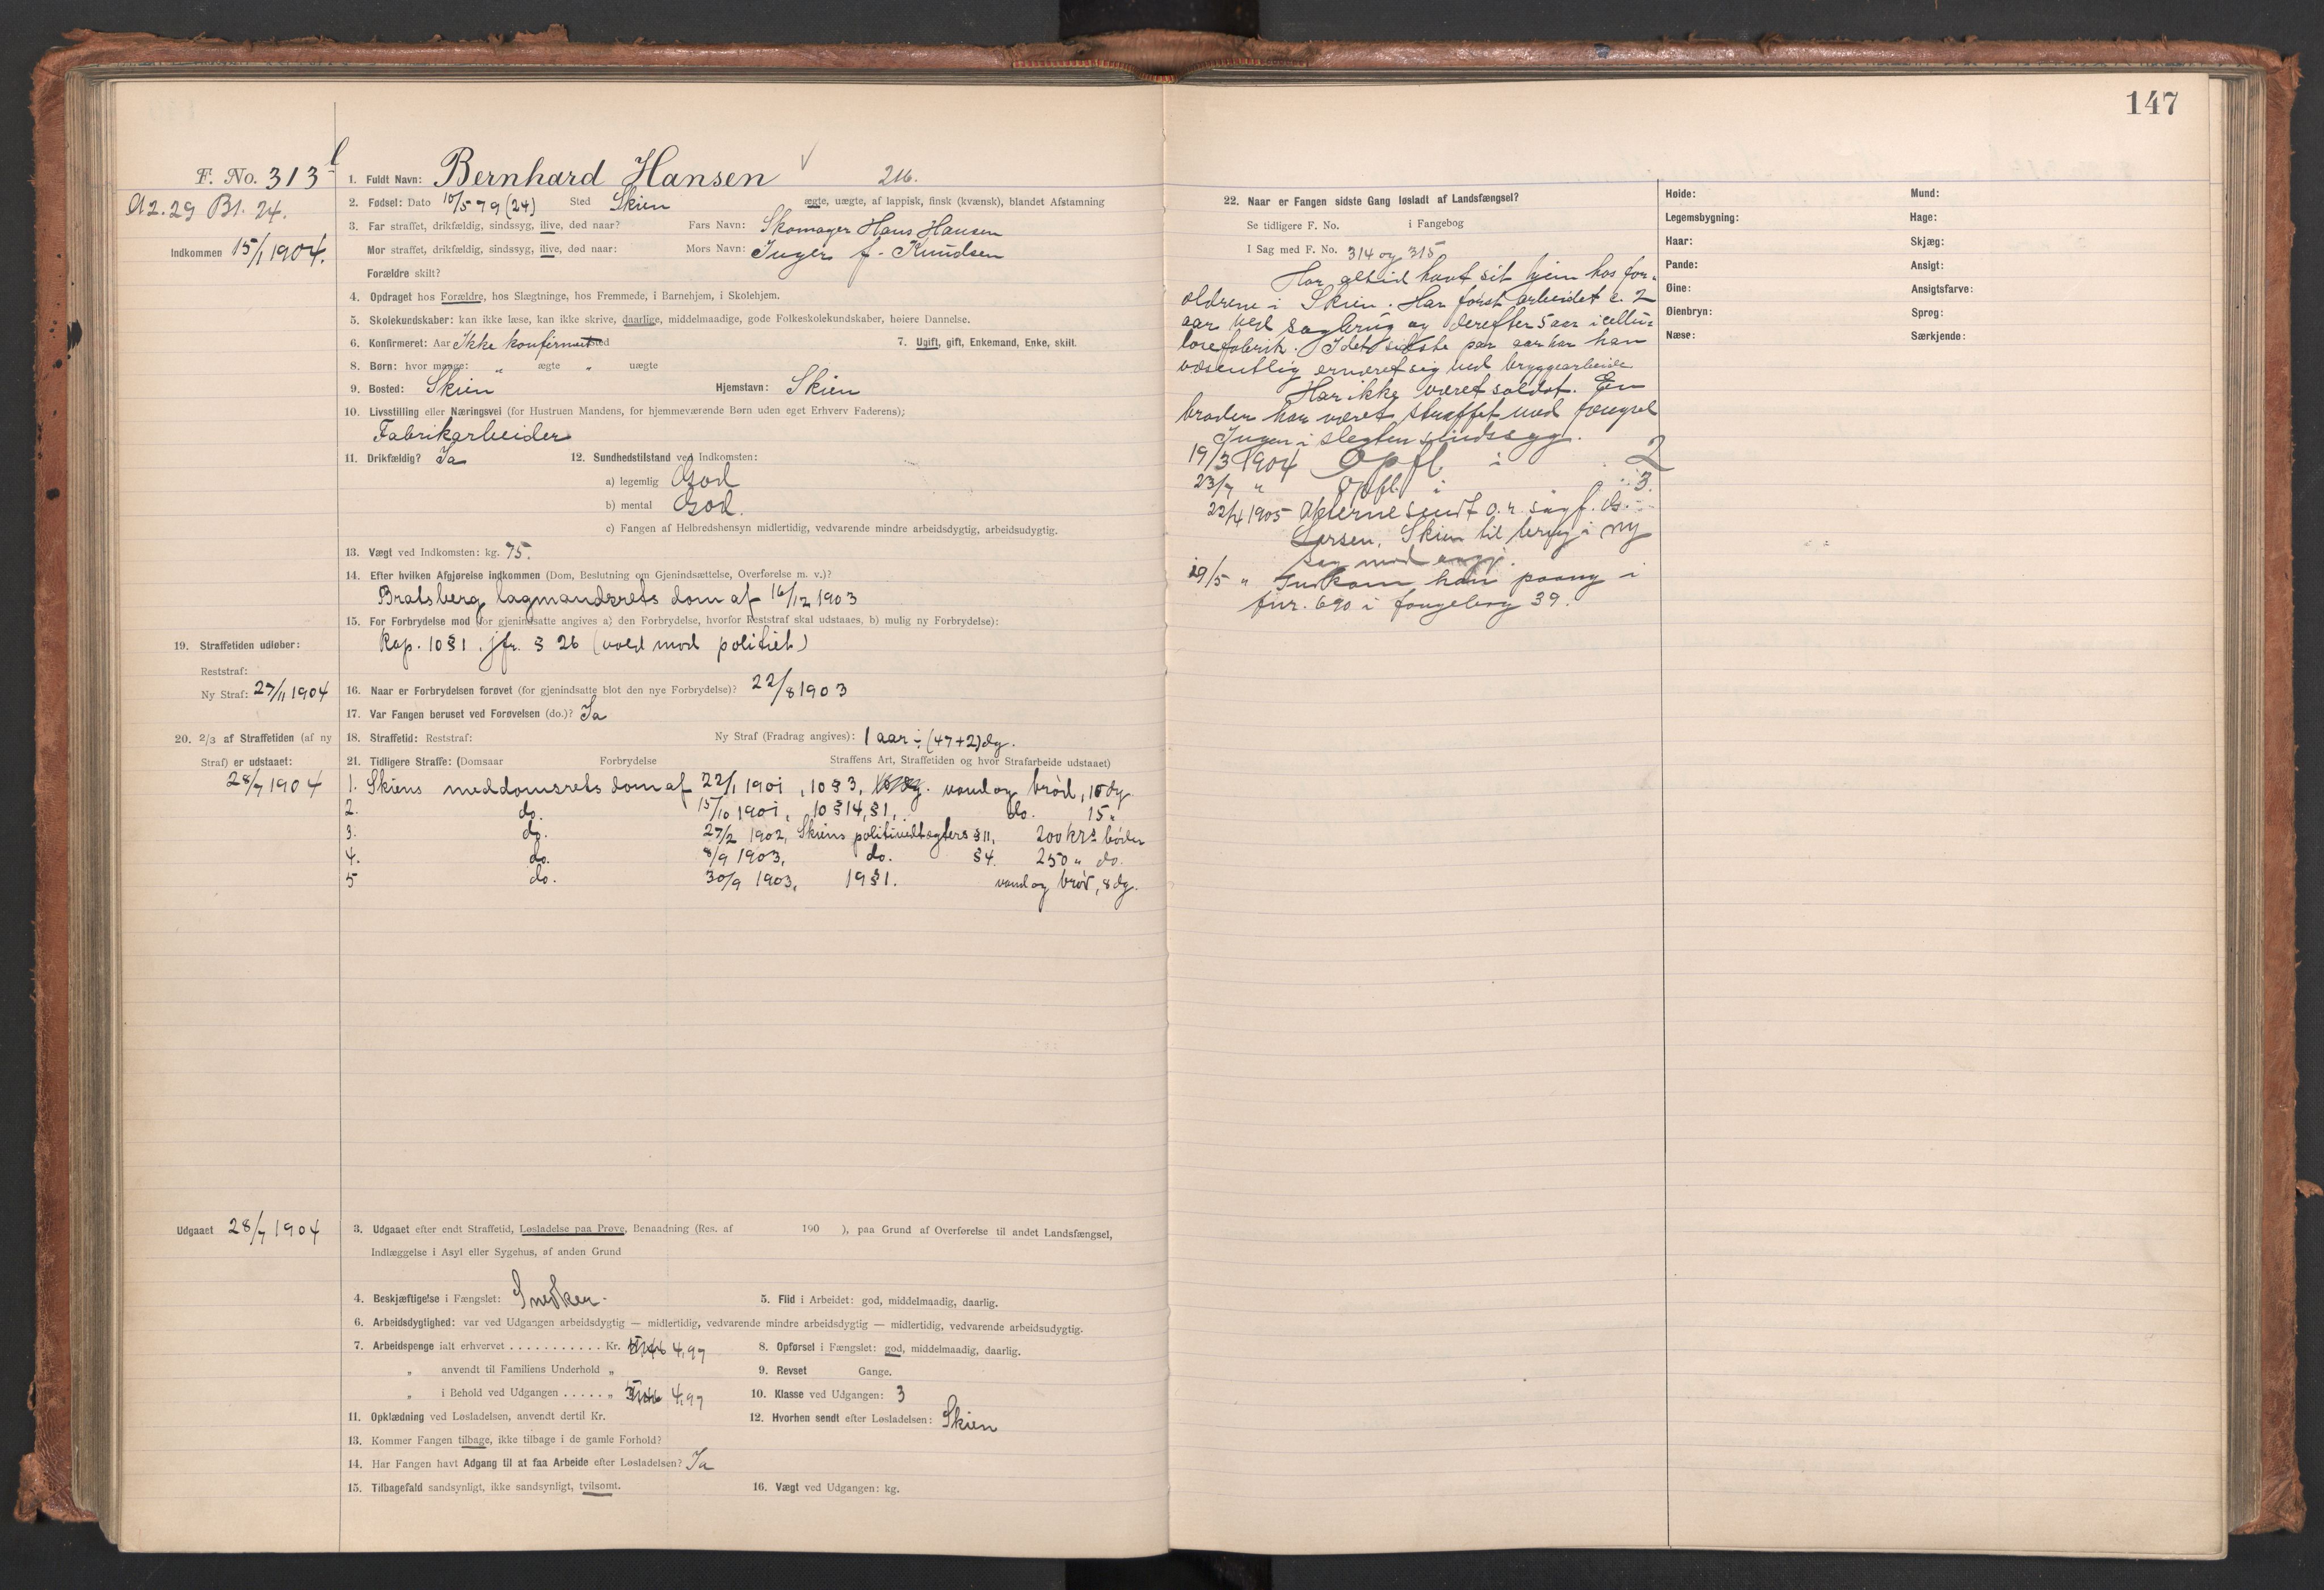 147
F. No. 313
A2.29 Bl. 24.
Indkommen 15/1 1904.
1. Fuldt Navn: Bernhard Hansen 216.
2. Fødsel: Dato 10/5 79 (24) Sted Skien ægte, uægte, af lappisk, finsk (kvænsk), blandet Afstamning
3. Far straffet, drikfældig, sindssyg, ilive, død naar? Fars Navn: Skomager Hans Hansen
Mor straffet, drikfældig, sindssyg, ilive, død naar: Mors Navn: Inger f. Knudsen
Forældre skilt?
4. Opdraget hos Forældre, hos Slægtninge, hos Fremmede, i Barnehjem, i Skolehjem.
5. Skolekundskaber: kan ikke læse, kan ikke skrive, daarlige, middelmaadige, gode Folkeskolekundskaber, høiere Dannelse.
6. Konfirmeret: Aar Ikke konfirmert Sted 7. Ugift, gift, Enkemand, Enke, skilt.
8. Børn: hvor mange: " ægte " uægte
9. Bosted: Skien Hjemstavn: Skien
10. Livsstilling eller Næringsvei (for Hustruen Mandens, for hjemmeværende Børn uden eget Erhverv Faderens);
Fabrikarbeider
11. Drikfældig? Ja 12. Sundhedstilstand ved Indkomsten:
a) legemlig God
b) mental God.
c) Fangen af Helbredshensyn midlertidig, vedvarende mindre arbeidsdygtig, arbeidsudygtig.
13. Vægt ved Indkomsten: kg. 75.
14. Efter hvilken Afgjørelse indkommen (Dom, Beslutning om Gjenindsættelse, Overførelse m. v.)?
Bratsberg lagmandsrets dom af 16/12 1903
15. For Forbrydelse mod (for gjenindsatte angives a) den Forbrydelse, hvorfor Reststraf skal udstaaes, b) mulig ny Forbrydelse):
Kap. 10 § 1. jfr. § 26 (vold mod politiet)
19. Straffetiden udløber:
Reststraf:
Ny Straf: 27/11 1904
16. Naar er Forbrydelsen forøvet (for gjenindsatte blot den nye Forbrydelse)? 22/8 1903
17. Var Fangen beruset ved Forøvelsen (do.)? Ja
20. 2/3 af Straffetiden (af ny
Straf) er udstaaet:
28/7 1904
18. Straffetid: Reststraf: Ny Straf (Fradrag angives): 1 aar ÷ (47+2) dg.
21. Tidligere Straffe: (Domsaar Forbrydelse Straffens Art, Straffetiden og hvor Strafarbeide udstaaet)
1. Skiens meddomsrets dom af 22/1 1901, 10 § 3, vand og brød, 10 dg.
2. do. 15/10 1901, 10 § 14, § 1, do. 15 "
3. do. 27/2 1902, Skiens politivedtægters § 11, 200 krs bøder
4. do. 8/9 1903, do. § 4. 250 " do.
5 do. 30/9 1903, 19 § 1. vand og brød, 8 dg.
Udgaaet 28/7 1904
3. Udgaaet efter endt Straffetid, Løsladelse paa Prøve, Benaadning (Res. af 190 ), paa Grund af Overførelse til andet Landsfængsel,
Indlæggelse i Asyl eller Sygehus, af anden Grund
4. Beskjæftigelse i Fængslet: Snedker. 5. Flid i Arbeidet: god, middelmaadig, daarlig.
6. Arbeidsdygtighed: var ved Udgangen arbeidsdygtig — midlertidig, vedvarende mindre arbeidsdygtig — midlertidig, vedvarende arbeidsudygtig.
7. Arbeidspenge ialt erhvervet ........... Kr. 4,97 8. Opførsel i Fængslet: god, middelmaadig, daarlig.
" anvendt til Familiens Underhold " 9. Revset Gange.
" i Behold ved Udgangen ..... " 4,97 10. Klasse ved Udgangen: 3
11. Opklædning ved Løsladelsen, anvendt dertil Kr. 12. Hvorhen sendt efter Løsladelsen: Skien
13. Kommer Fangen tilbage, ikke tilbage i de gamle Forhold?
14. Har Fangen havt Adgang til at faa Arbeide efter Løsladelsen? Ja
15. Tilbagefald sandsynligt, ikke sandsynligt, tvilsomt. 16. Vægt ved Udgangen: kg.
22. Naar er Fangen sidste Gang løsladt af Landsfængsel?
Se tidligere F. No. i Fangebog
I Sag med F. No. 314 og 315
Har altid havt sit hjem hos for-
ældrene i Skien. Har først arbeidet c. 2
aar ved sagbrug og derefter 5 aar i cellu-
losefabrik. I det sidste par aar har han
væsentlig ernæret sig ved bryggearbeide
Har ikke været soldat. En
broder har været straffet med fængsel
Ingen i slegten sindssyg.
19/3 1904 Opfl. i 2
23/7 " Opfl. i 3.
22/4 1905 Akterne sendt o.r. sagf.
Larsen, Skien til brug i ny
sag mod angj.
29/5 " Indkom han paany i
fnr. 690 i fangebog 39.
Høide: Mund:
Legemsbygning: Hage:
Haar: Skjæg:
Pande: Ansigt:
Øine: Ansigtsfarve:
Øienbryn: Sprog:
Næse: Særkjende: